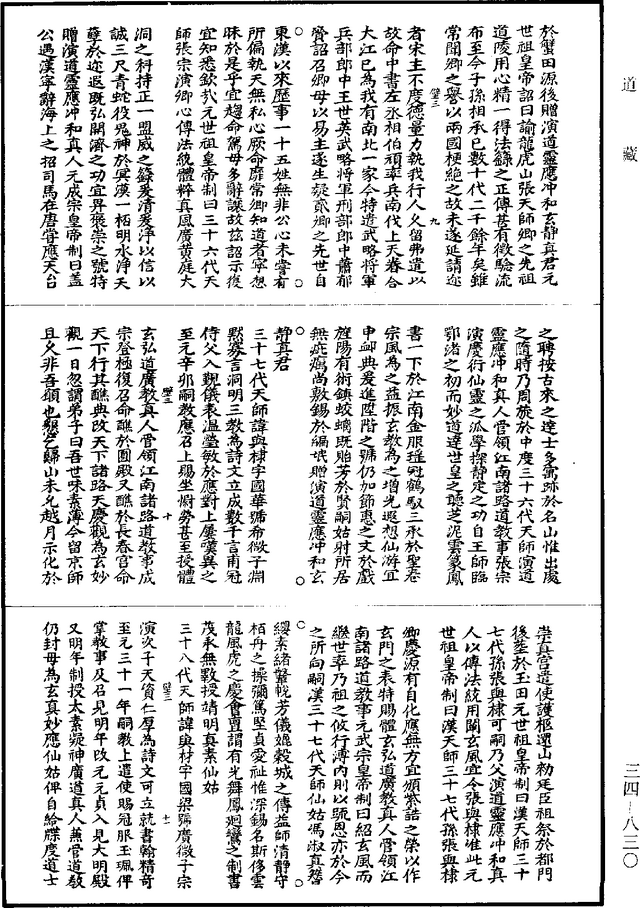 道藏
於蟹田源後贈演道靈應冲和玄靜真君元
世祖皇帝詔曰諭龍虎山張天師卿之先祖
道陵用心精一得法籙之正傳甚有徵驗流
布至今子孫相承已數十代二千餘年矣雖
常聞卿之譽以兩國梗絶之故未遂延請迩
者宋主不度德量力執我行人久留弗遣以
故命中書左丞相伯顔率兵南伐上天眷合
大江已為我有南北一家今特遣武略將軍
兵部郎中王世英武略將軍刑部郎中蕭郁
齎詔召卿毋以易主遂生疑貳卿之先世自
東漢以來歷事一十五姓無非公心未嘗有
所偏執天無私心厥命靡常卿知道者寧想
昧於是乎宜趨命駕毋多辭謙故茲詔示後
宜知悉欽哉元世祖皇帝制曰三十六代天
師張宗演卿心傳法統體粹真風廣黃庭大
洞之科持正一盟威之籙爰清爰淨以信以
誠三尺青蛇役鬼神於冥漠一栢明水淨天
孽於迩遐既弘開濟之功宜畀褒崇之號特
贈演道靈應冲和真人元成宗皇帝制曰蓋
公遇漢寧辭海上之招司馬在唐嘗應天台
之聘按古來之達士多寓跡於名山惟出處
之隨時乃周旋於中度三十六代天師演道
靈應冲和真人管領江南諸路道教事張宗
演慶衍仙靈之派學探靜定之功自王師臨
鄂渚之初而妙道達世皇之聽芝泥雲篆鳳
書一下於江南金服璡冠鶴馭三承於聖眷
宗風為之益振玄教為之增光遐想仙游宜
申卹典爰進陞階之號仍加節惠之文於戲
旌陽有術鎮蛟螭既貽芳於賢嗣姑射所居
無疵癘尚敷錫於編氓贈演道靈應冲和玄
靜真君
三十七代天師諱與棣字國華號希微子淵
默寡言洞明三教為詩文立成數千言甫冠
侍父入覲儀表溫瑩敏於應對上屢嘆異之
至元辛卯嗣教應召上賜坐慰勞甚至授體
玄弘道廣教真人管領江南諸路道教事成
宗登極復召命醮於圓殿又醮於長春宮命
天下行其醮典改天下諸路天慶觀為玄妙
觀一日忽謂弟子曰吾世味素薄今留京師
且久非吾願也懇乞歸山未允越月示化於
崇真宮遣使護柩還山勑廷臣祖祭於都門
後塟於玉田元世祖皇帝制曰漢天師三十
七代孫張與棣可嗣乃父演道靈應冲和真
人以傳法統用闡玄風宜令張與棣惟此元
世祖皇帝制曰漢天師三十七代孫張與棣
卿慶源有自化應無方宜頒紫誥之榮以作
玄門之表特賜體玄弘道廣教真人管領江
南諸路道教事元武宗皇帝制曰紹玄風而
繼世幸乃祖之攸行溥内則以號恩亦於今
之所向嗣漢三十七代天師仙姑馮淑真簪
纓素緒鞶帨芳儀媲穀城之傳益師清靜守
栢舟之操彌篤堅貞愛祉惟深錫名斯侈雲
龍風虎之慶會亶謂有光舞鳳迴鸞之制書
茂承無斁授靖明真素仙姑
三十八代天師諱與材字國梁號廣微子宗
演次子天資仁厚為詩文可立就書翰精奇
至元三十一年嗣教上遣使賜冠服玉珮俾
掌教事及召見明年改元元貞入見大明殿
又明年制授太素凝神廣道真人兼管道教
仍封母為玄真妙應仙姑俾自給牒度道士
三四—八三〇
璧三 九
璧三 十
璧三 十一